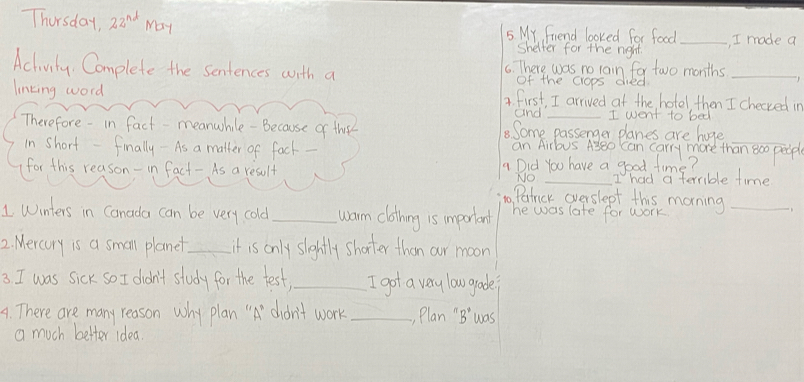 Thursday, 22nd May
Activity. Complete the sentences with a
linking word
Therefore - in fact - meanwhile - Because of this -
in short - finally - As a matter of fact -
for this reason - in fact - As a result
1. Winters in Canada can be very cold ______ warm clothing is important
2. Mercury is a small planet ______ it is only slightly shorter than our moon
3. I was sick so I didn't study for the test, ______ I got a very low grade.
4. There are many reason why plan "A" didn't work ______, Plan "B" was
a much better idea.
5. My friend looked for food ______, I made a
shelter for the night.
6. There was no rain for two months ______,
of the crops died.
7. first, I arrived at the hotel, then I checked in
and ______ I went to bed
8. Some passenger planes are huge ______
an Airbus A380 can carry more than 800 people
9. Did you have a good time?
No ______ I had a terrible time
10. Patrick overslept this morning ______,
he was late for work